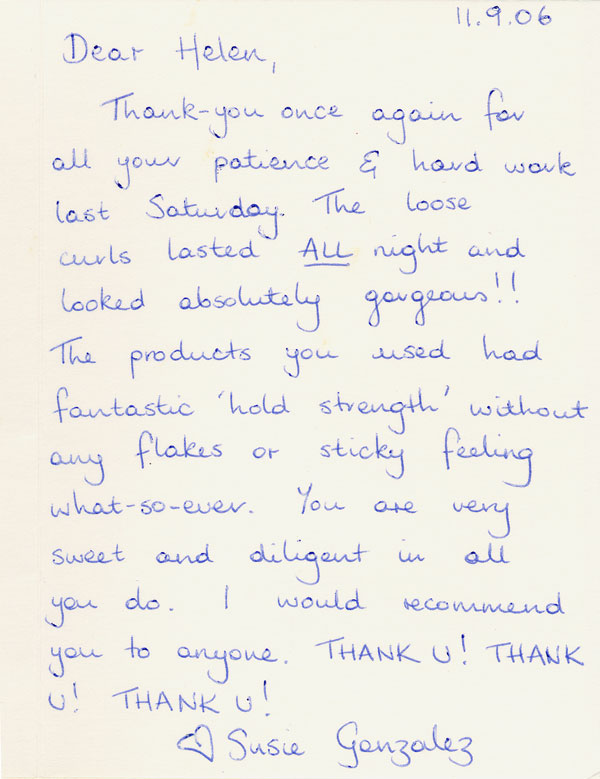 11.9.06
Dear Helen,
Thank-you once again for
all your patience & hard work
last Saturday. The loose
curls lasted ALL night and
looked absolutely gorgeous!!
The products you used had
fantastic 'hold strength' without
any flakes or sticky feeling
what-so-ever. You are very
sweet and diligent in all
you do. I would recommend
you to anyone. THANK U! THANK
U! THANK U!
♡ Susie Gonzalez